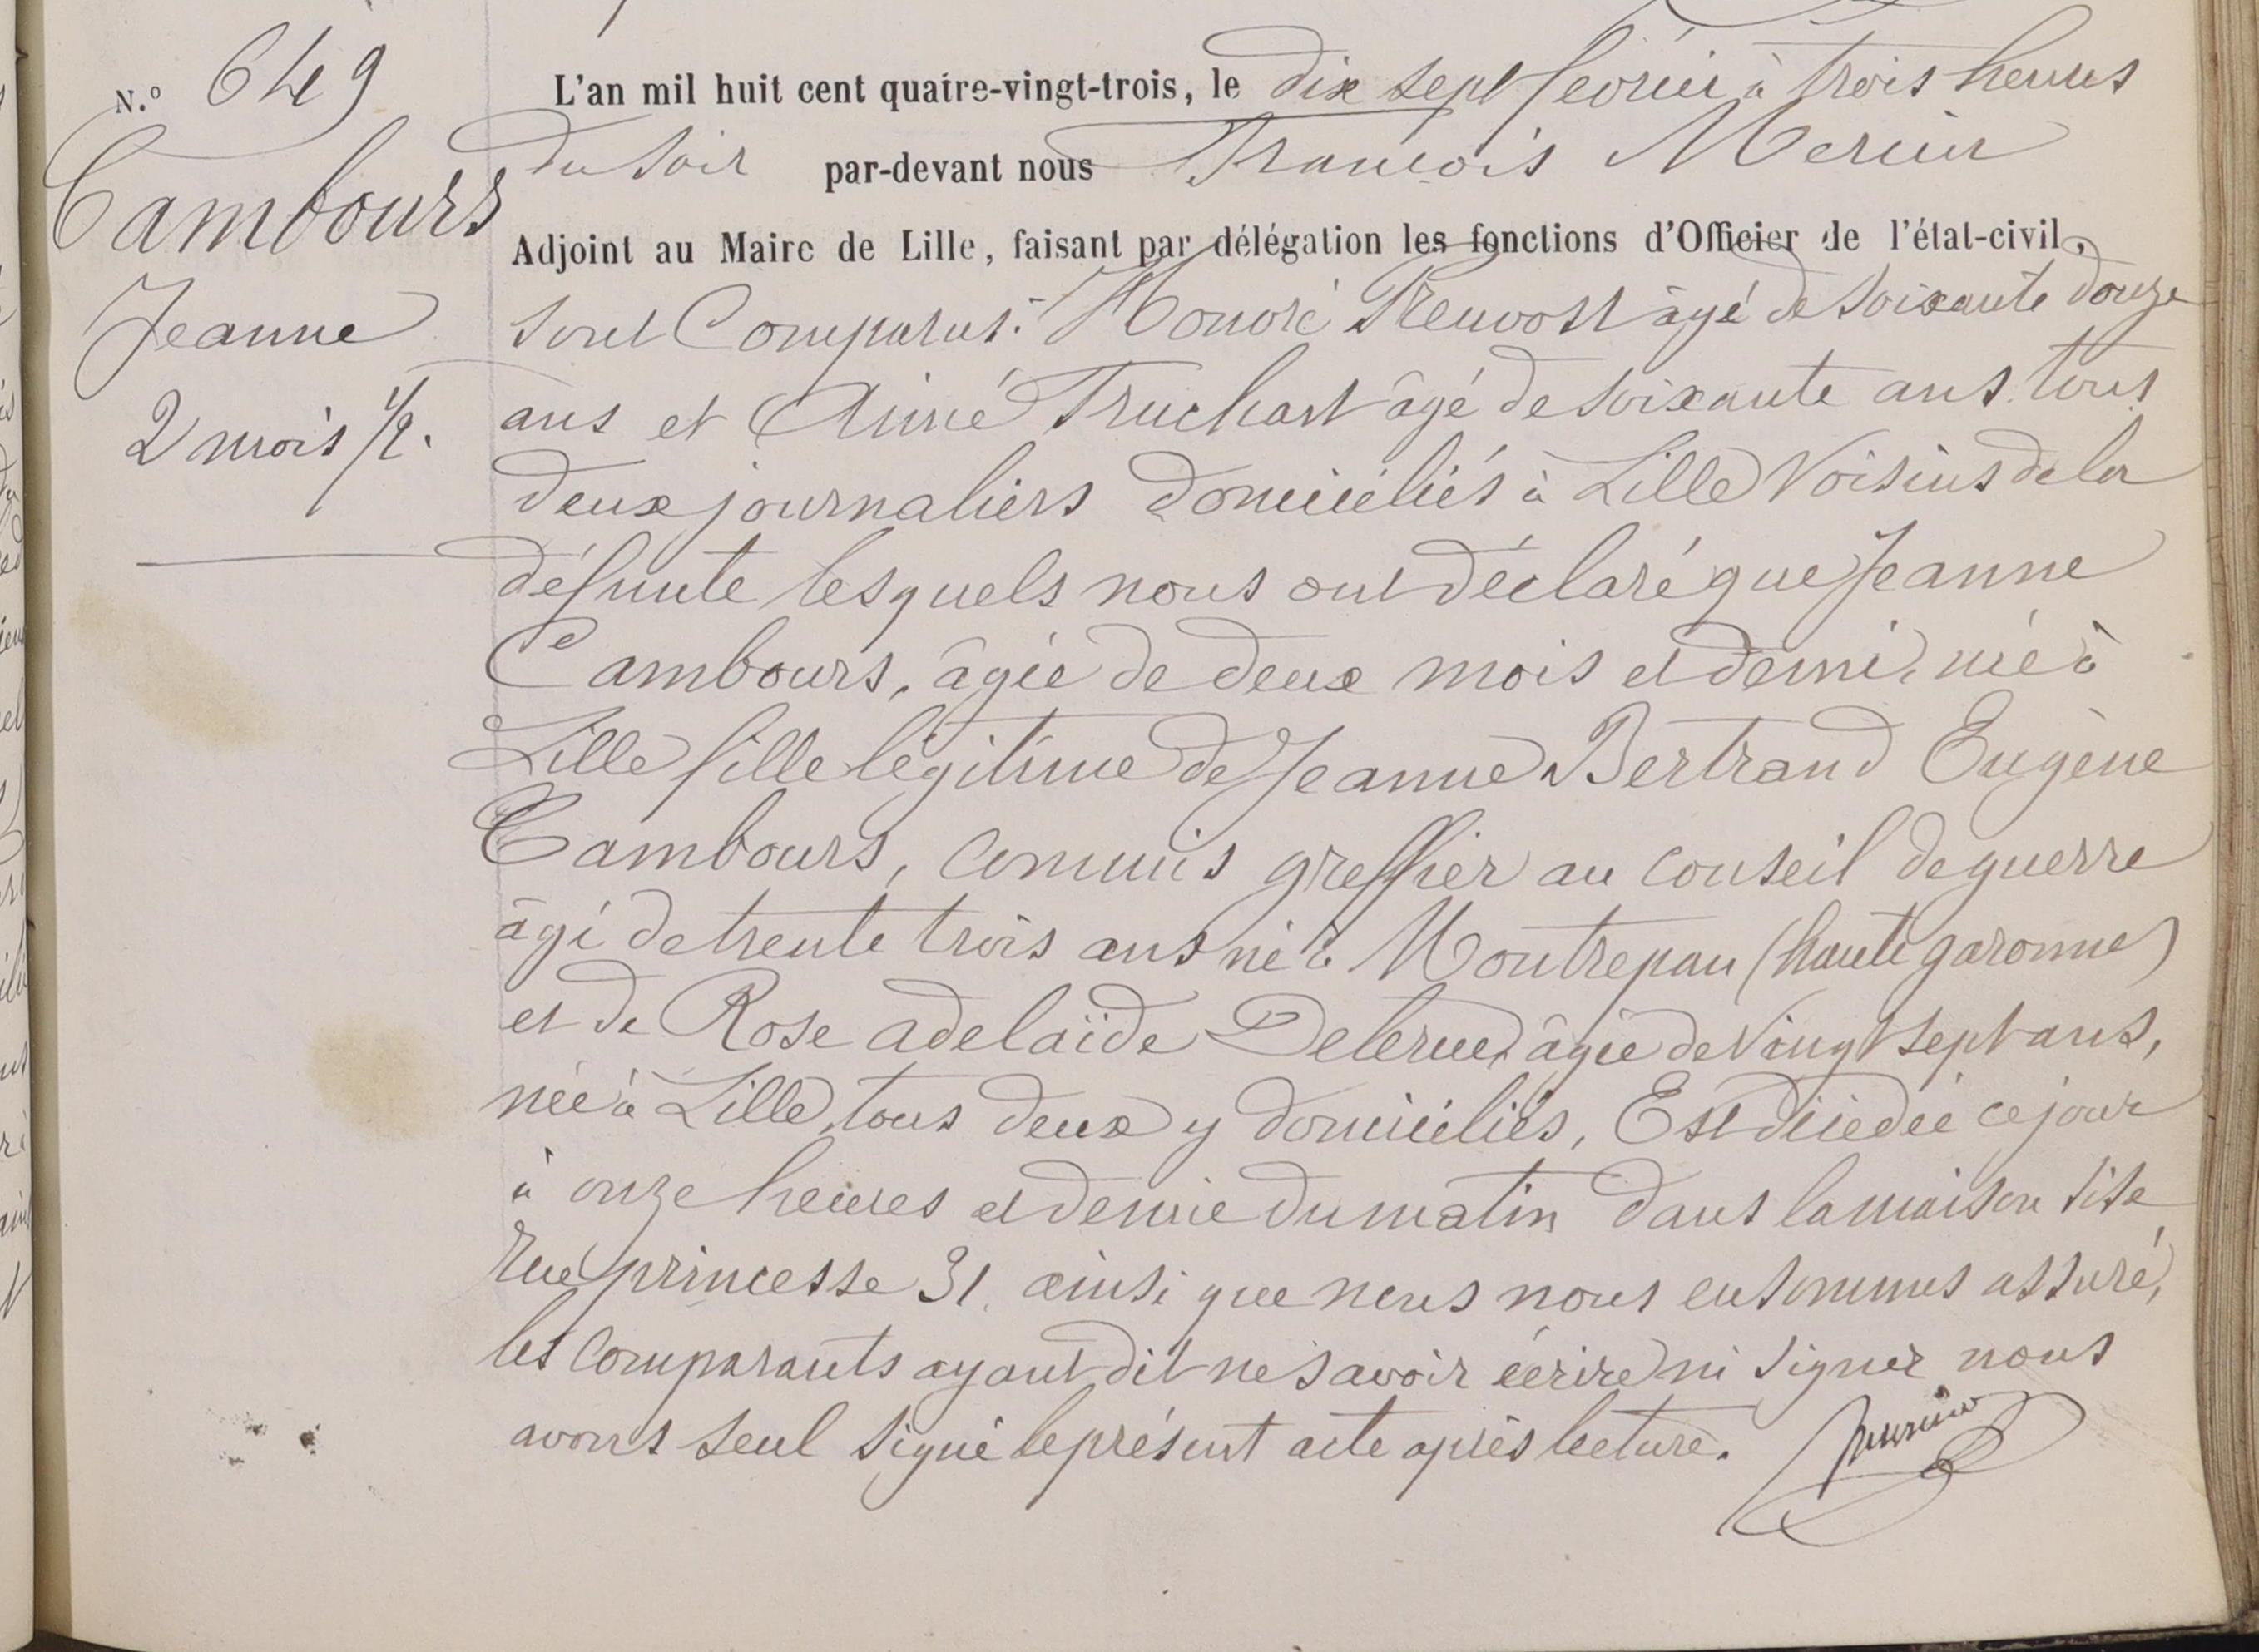 N.º 649
Cambours
Jeanne
2 mois 1/2.
L'an mil huit cent quatre-vingt-trois, le dix sept février à trois heures
du soir par-devant nous François Mercier
Adjoint au Maire de Lille, faisant par délégation les fonctions d'Officier de l'état-civil,
sont Comparus: Honoré Prenvost âgé de soixante douze
ans et Aimé Truchart âgé de soixante ans. tous
deux journaliers domiciliés à Lille Voisins de la
défunte lesquels nous ont déclaré que Jeanne
Cambours, âgée de deux mois et demi, née à
Lille fille légitime de Jeanne Bertrand Eugène
Cambours, commis greffier au conseil de guerre
âgé de trente trois ans né à Montrepau (haute garonne)
et de Rose adelaïde Delerue, âgée de Vingt sept ans,
née à Lille, tous deux y domiciliés, Est décédée ce jour
à onze heures et demie du matin dans la maison sise
rue princesse 31. ainsi que nous nous en sommes assuré,
les Comparants ayant dit ne savoir écrire ni signer nous
avons seul signé le présent acte après lecture.